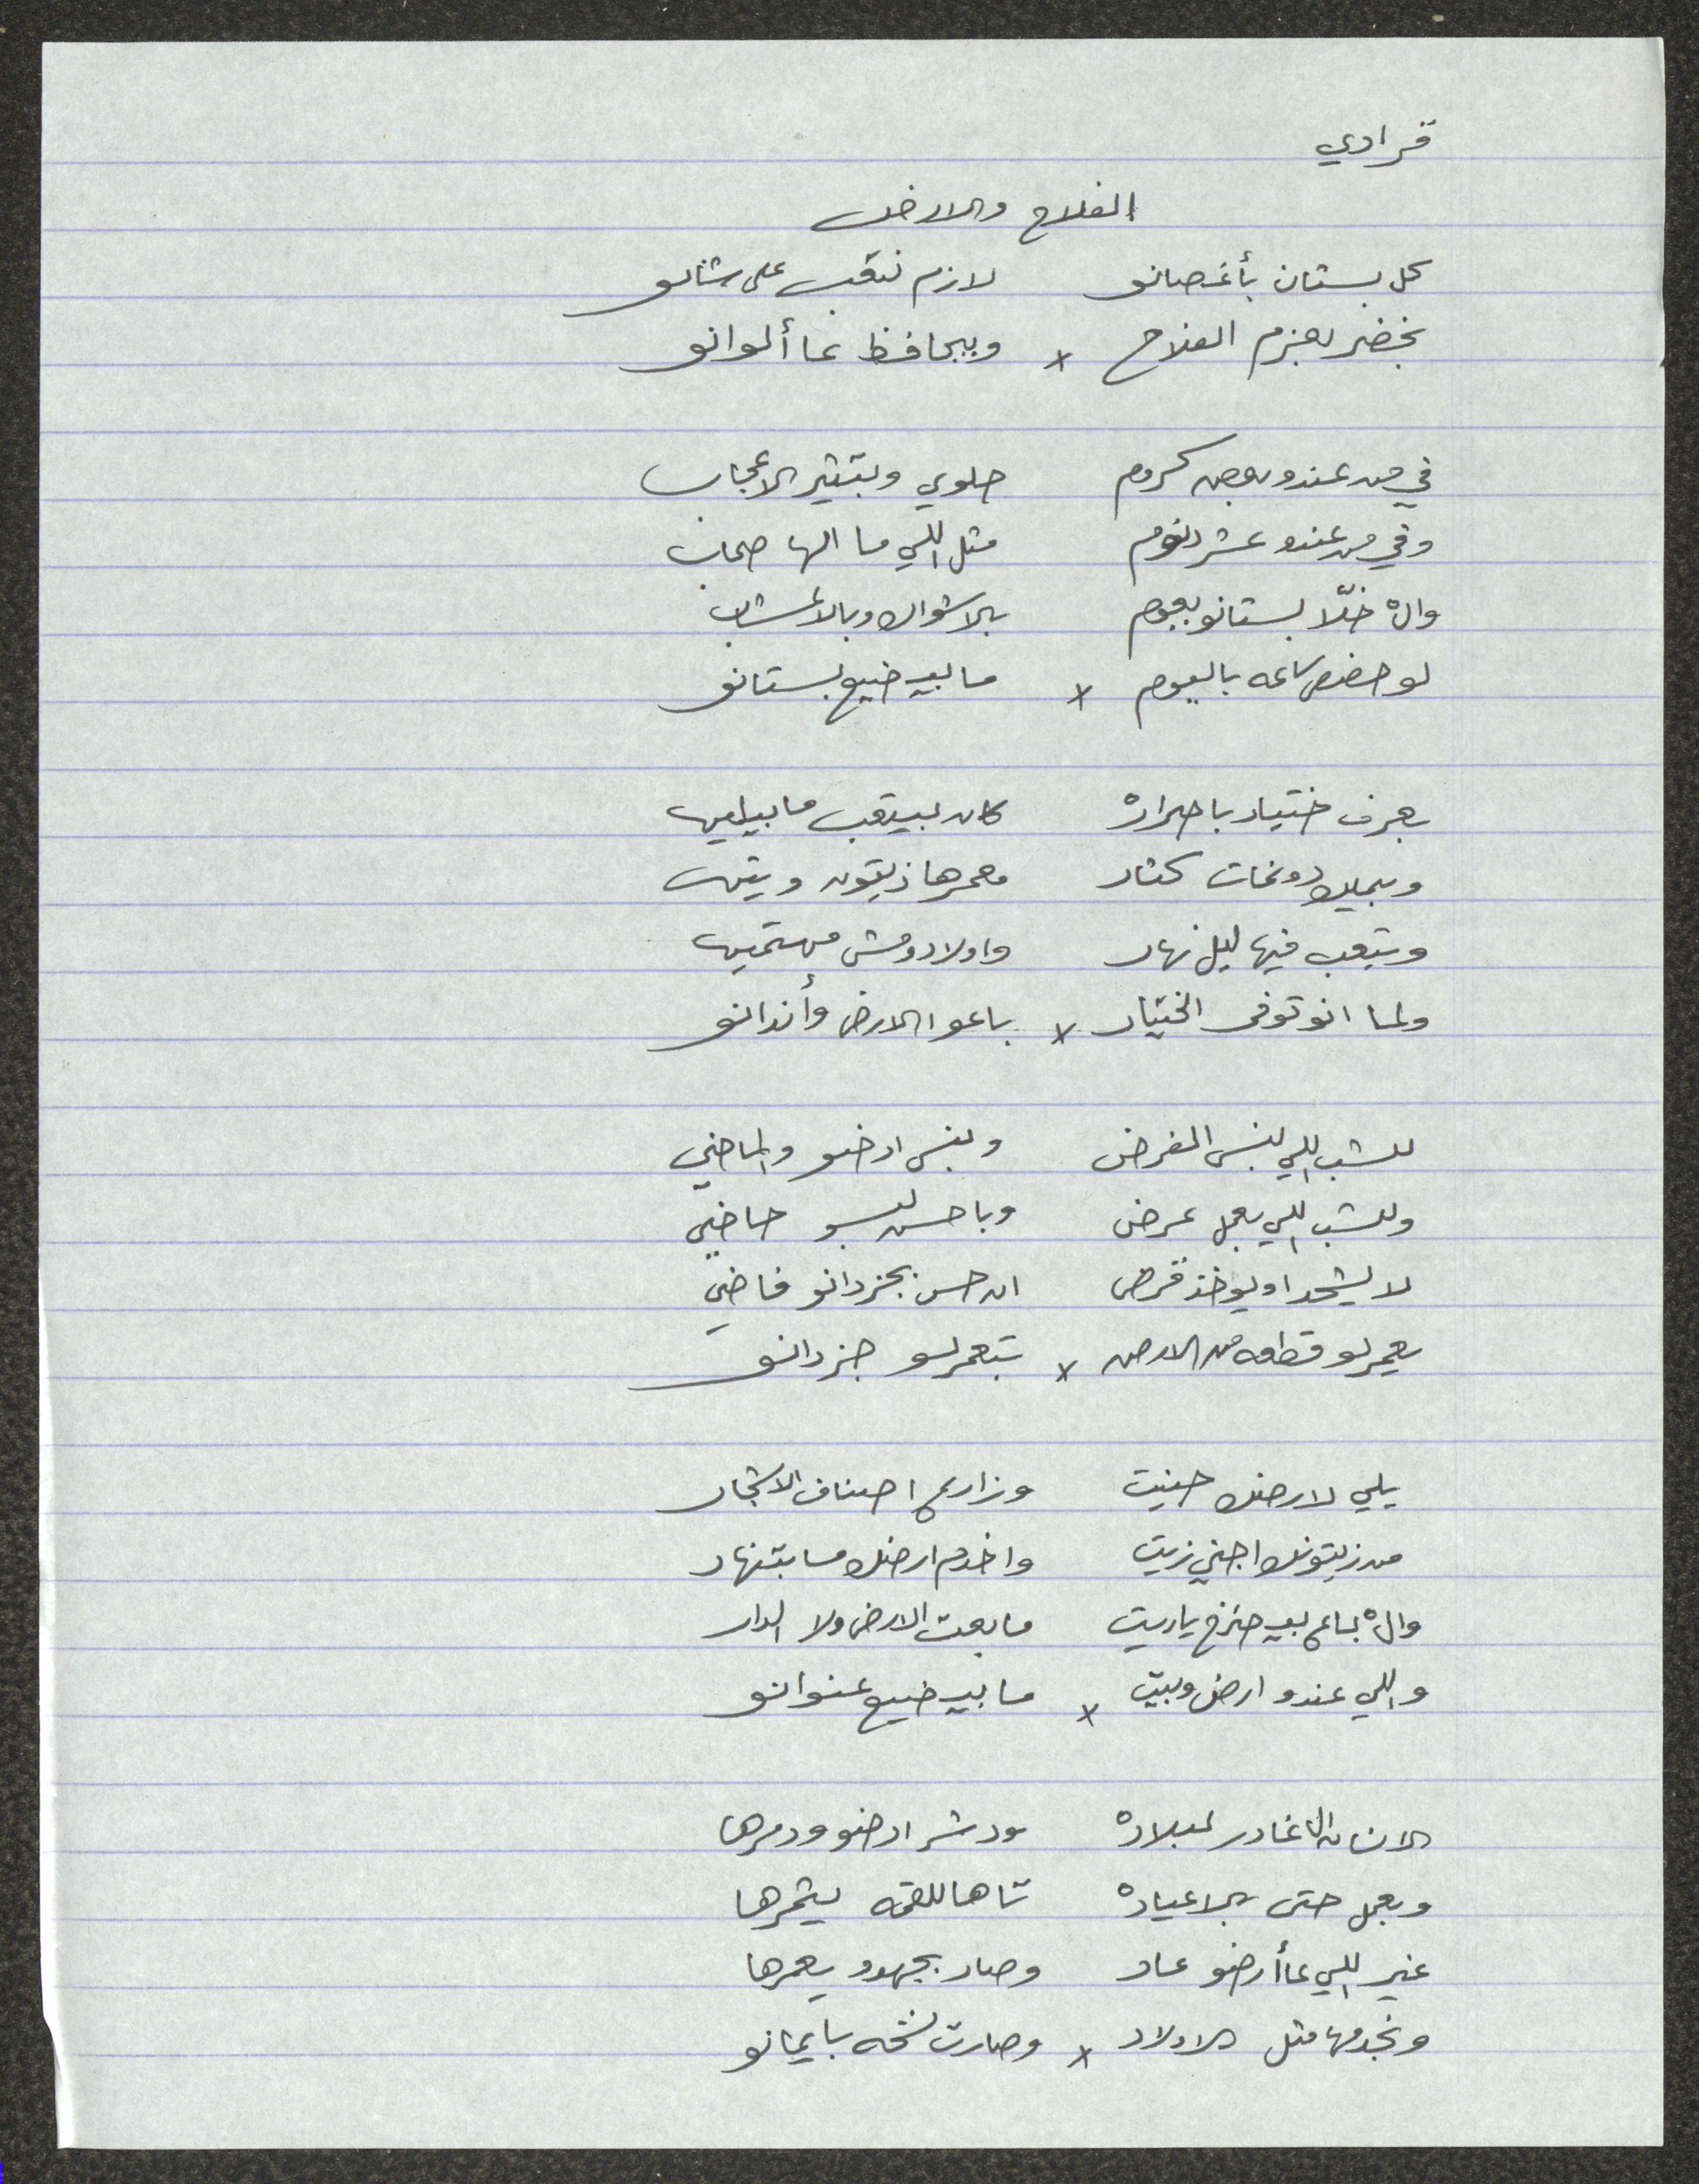 قرادي
الفلاح والارض
كل بستان بأغصانو لازم نتعب على شانو
بخضر بعزم الفلاح x وبيحافظ عا ألوانو
في من عندو بعض كروم حلوي وبتثير الاعجاب
وفي من عندو عشر دنوم متل اللي ما الها صحاب
وال خلّا بستانو بعوم بالاشواك وبالاعشاب
لو خصص ساعه باليوم x ما بيضيع بستانو
بعرف ختيار باصرار كان بيتعب ما بيلين
وبيملك دونمات كتار معمرها زيتون وتين
وبتعب فيها ليل نهار واولادو مش مهتمين
ولما انو توفى الختيار x باعوا الارض وأندانو
للشب اللي بنسى المفرض وبنسى ارضو والماضي
وللشب اللي بعمل عرض وباحسن لبسو حاضي
لا يشحد او يوخذ قرض ان حس بجزدانو فاضي
يعمرلو قطعه من الارض x بتعمرلو جزدانو
يلي لارضك حنيت وزارع اصناف الاشجار
من زيتونك اجني زيت واخدم ارضك ما بتنهار
وال باع بيصرخ ياريت ما بعت الارض ولا الدار
واللي عندو ارض وبيت x ما بيضيع عنوانو
الانسان الغادر لبلاده ودشر ارضو ودمرها
وبعمل حتى بالاعياده تا هاللقمه يتمرها
غير اللي عا أرضو عاد وصار بجهدو يعمرها
وبخدمها متل الاولاد x وصارت نسخه بايمانو